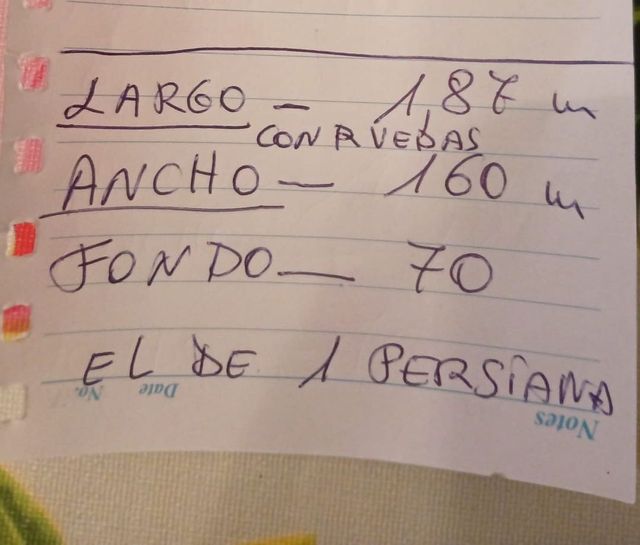 LARGO - 1,87 m
CON RUEDAS
ANCHO - 160 m
FONDO - 70
EL DE 1 PERSIANA
No. Date
Notes